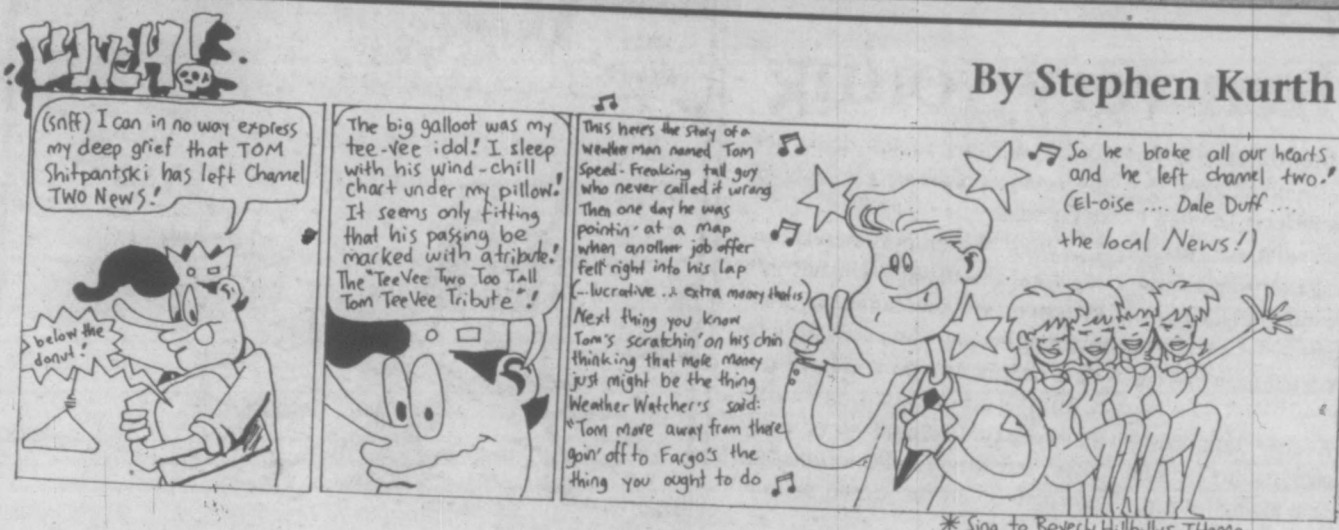 CINCH!
By Stephen Kurth
(snff) I can in no way express
my deep grief that TOM
Shitpantski has left Channel
TWO News!
below the
donut!
The big galloot was my
tee-vee idol! I sleep
with his wind-chill
chart under my pillow!
It seems only fitting
that his passing be
marked with a tribute!
The "TeeVee Two Too Tall
Tom TeeVee Tribute"!
This here's the story of a
weather man named Tom
Speed-Freaking tall guy
who never called it wrong
Then one day he was
pointin' at a map
when another job offer
fell right into his lap
(...lucrative... extra money that is)
Next thing you know
Tom's scratchin' on his chin
thinking that more money
just might be the thing
Weather Watcher's said:
"Tom move away from there
goin' off to Fargo's the
thing you ought to do
So he broke all our hearts
and he left channel two."
(El-oise .... Dale Duff ....
the local News!)
* Sing to Beverly Hillbillies Theme